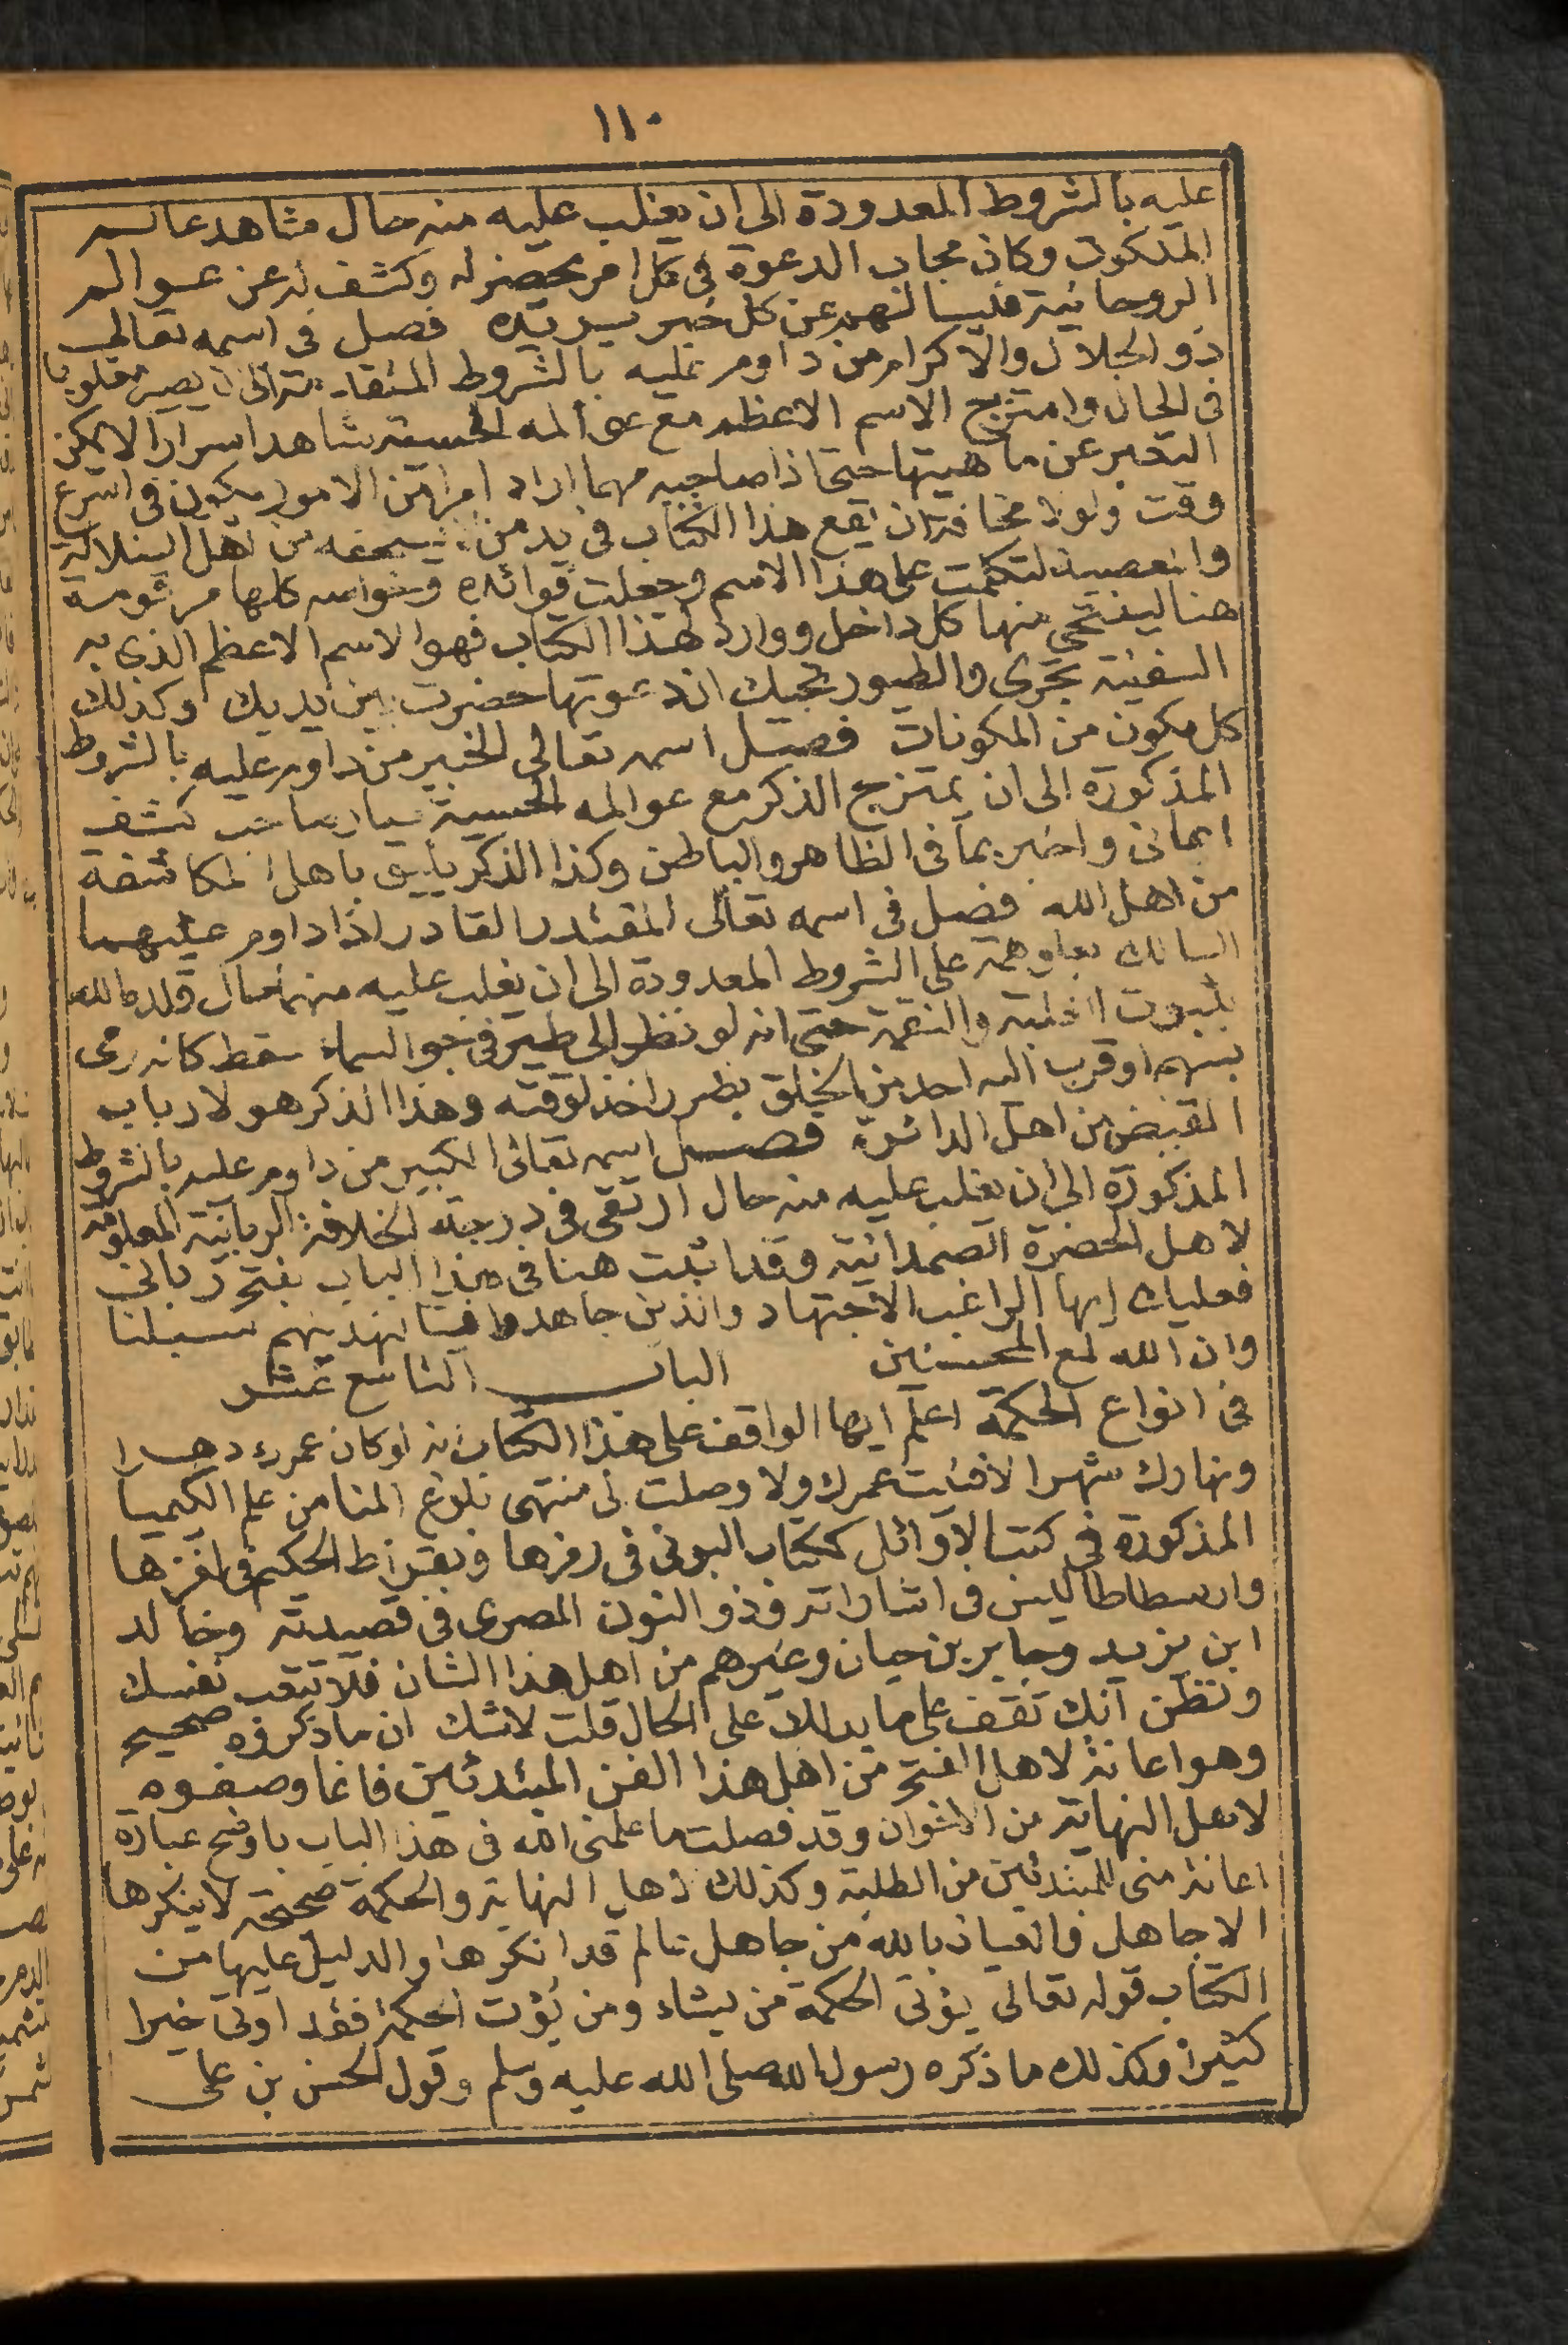 ١١٠
عليه بالشروط المعدودة الى ان يغلب عليه منه حال مشاهد عالم
الملكوت وكان مجاب الدعوة فى كل امر يحضر له وكشف له عن عوالم
الروحانية فيسالهم عن كل خبر يريده فصل فى اسمه تعالى
ذو الجلال والاكرام من داوم عليه بالشروط المتقدمة الى ان يصير مغلوبا
فى الحال وامتزج الاسم الاعظم مع عوالمه الحسية شاهد اسرارا لا يمكن
التعبير عن ماهيتها حتى اذا صاحبه مهما اراد امرا من الامور يكون فى اسرع
وقت ولولا مخافة ان يقع هذا الكتاب فى يد من يستحقه من اهل الضلالة
والمعصية لتكلمت على هذا الاسم وجعلت فوائده وخواصه كلها مرقومة
هنا ليغتنى منها كل داخل ووارد لهذا الكتاب فهو الاسم الاعظم الذى به
السفينة تجرى والطيور تجيبك ان دعوتها حضرت بين يديك وكذلك
كل مكون من المكونات فصل اسمه تعالى الخبير من داوم عليه بالشروط
المذكورة الى ان يمتزج الذكر مع عوالمه الحسية صار صاحب كشف
ايمانى واخبر بما فى الظاهر والباطن وكذا الذكر يليق باهل المكاشفة
من اهل الله فصل فى اسمه تعالى المقتدر القادر اذا داوم عليهما
السالك بعلو همة على الشروط المعدودة الى ان يغلب عليه منهما حال قلده الله
بثبوت الغلبة والنقمة حتى انه لو نظر الى طير فى جو السماء سقط كانه رمى
بسهم او قرب اليه احد من الخلق بضر اخذ لوقته وهذا الذكر هو لارباب
القبض من اهل الدائرة فصل اسمه تعالى الكبير من داوم عليه بالشروط
المذكورة الى ان يغلب عليه منه حال ارتقى فى درجة الخلافة الربانية المعلومة
لاهل الحضرة الصمدانية وقد اثبت هنا فى هذا الباب بفتح ربانى
فعليك ايها الراغب الاجتهاد والذين جاهدوا فينا لنهدينهم سبلنا
وان الله لمع المحسنين الباب التاسع عشر
فى انواع الحكمة اعلم ايها الواقف على هذا الكتاب انه لو كان عمرك دهرا
ونهارك شهرا لافنيت عمرك ولا وصلت الى منتهى بلوغ المنا من علم الكيميا
المذكورة فى كتب الاوائل ككتاب البونى فى رمزها وبقراط الحكيم فى لغزها
وارسطاطاليس فى اشاراته وذو النون المصرى فى قصيدته وخالد
ابن يزيد وجابر بن حيان وغيرهم من اهل هذا الشان فلا تتعب نفسك
وتظن انك تقف على ما يدلك على الحال قلت لا شك ان ما ذكروه صحيح
وهو اعانة لاهل الفتح من اهل هذا الفن المبتدئين فانما وصفوه
لاهل النهاية من الاخوان وقد فصلت ما علمنى الله فى هذا الباب باوضح عبارة
اعانة منى للمبتدئين من الطلبة وكذلك لاهل النهاية والحكمة صحيحة لا ينكرها
الا جاهل والعياذ بالله من جاهل عالم قد انكرها والدليل عليها من
الكتاب قوله تعالى يؤتى الحكمة من يشاء ومن يؤت الحكمة فقد اوتى خيرا
كثيرا وكذلك ما ذكره رسول الله صلى الله عليه وسلم وقول الحسن بن على